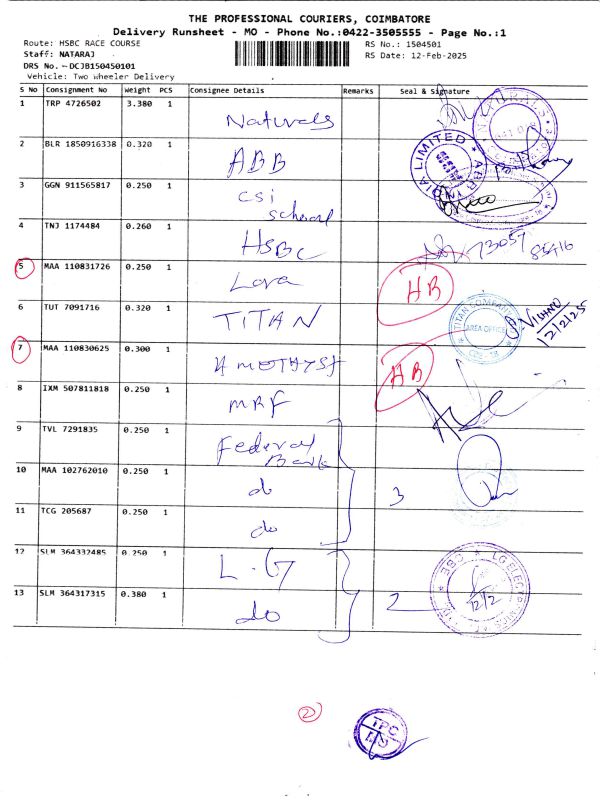 THE PROFESSIONAL COURIERS, COIMBATORE
Delivery Runsheet - MO - Phone No.:0422-3505555 - Page No.:1
Route: HSBC RACE COURSE
RS No.: 1504501
Staff: NATARAJ
RS Date: 12-Feb-2025
DRS No.-DCJB150450101
Vehicle: Two Wheeler Delivery
S No Consignment No Weight PCS Consignee Details Remarks Seal & Signature
1 TRP 4726502 3.380 1 Naturals
2 BLR 1850916338 0.320 1 ABB
3 GGN 911565817 0.250 1 CSi School
4 TNJ 1174484 0.260 1 HSBC 73057 85416
5 MAA 110831726 0.250 1 Lova HB
6 TUT 7091716 0.320 1 TITAN TITAN COMPANY AREA OFFICE 12/2/25
7 MAA 110830625 0.300 1 AMETHYST HB
8 IXM 507811818 0.250 1 MRF
9 TVL 7291835 0.250 1 Federal Bank
10 MAA 102762010 0.250 1 do 3
11 TCG 205687 0.250 1 do
12 SLM 364332485 0.250 1 L.G LG ELECTRO
13 SLM 364317315 0.380 1 do 2 12/2
2 TPC